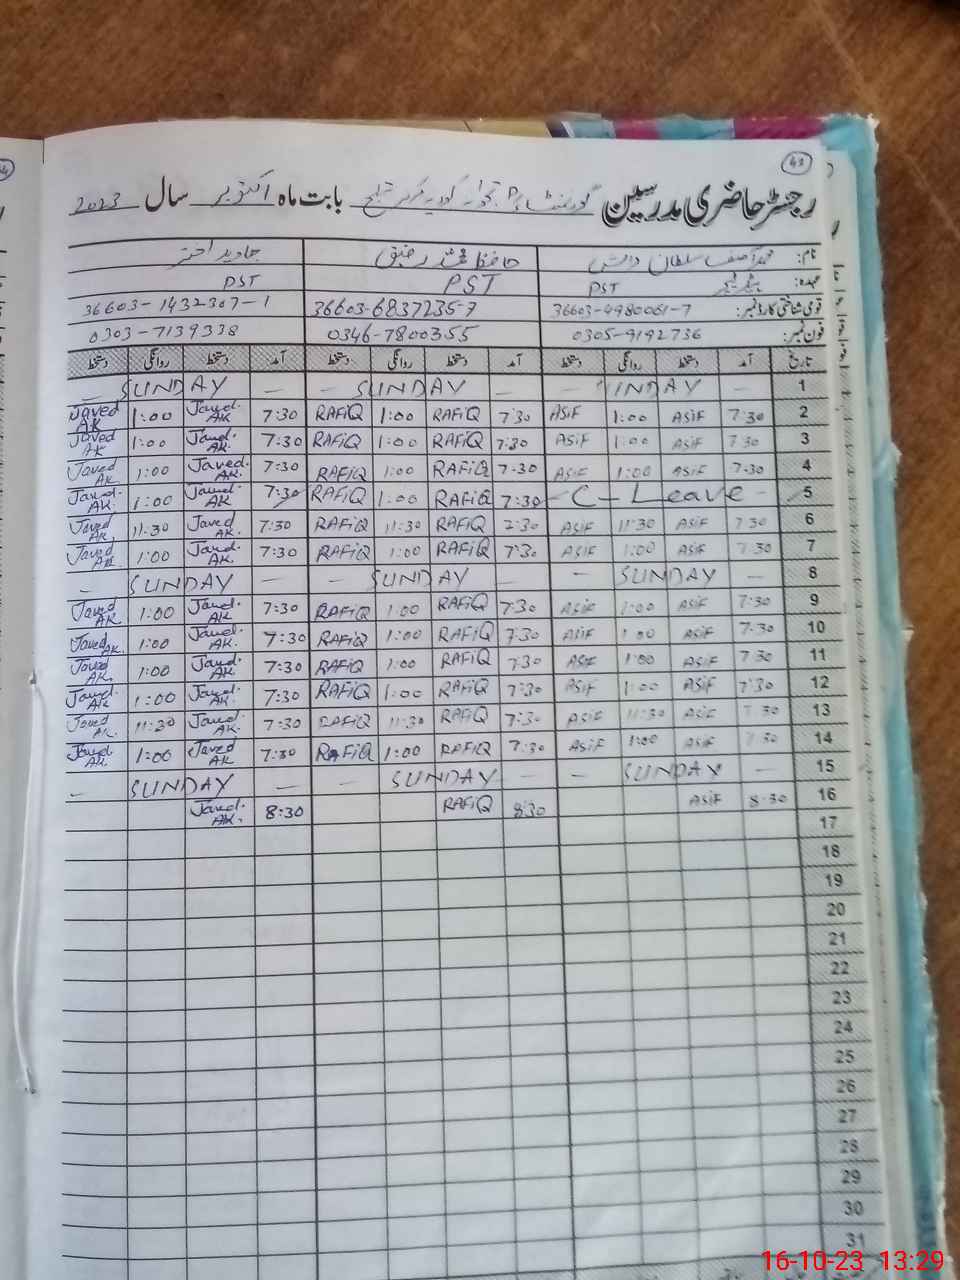 43
رجسٹر حاضری مدرسین گورنمنٹ بابت ماہ اکتوبر سال 2023
نام: محمد آصف سلطان دانش حافظ محمد رفیق جاوید اختر
عہدہ: PST PST PST
قومی شناختی کارڈ نمبر: 36603-4980061-7 36603-6837235-7 36603-1432307-1
فون نمبر: 0305-9192736 0346-7800355 0303-7139338
تاریخ آمد دستخط روانگی دستخط آمد دستخط روانگی دستخط آمد دستخط روانگی دستخط
1 — SUNDAY — — SUNDAY — — SUNDAY —
2 7:30 ASiF 1:00 ASiF 7:30 RAFiQ 1:00 RAFiQ 7:30 Javed AK 1:00 Javed AK
3 7:30 ASiF 1:00 ASiF 7:30 RAFiQ 1:00 RAFiQ 7:30 Javed AK. 1:00 Javed AK
4 7:30 ASiF 1:00 ASiF 7:30 RAFiQ 1:00 RAFiQ 7:30 Javed AK. 1:00 Javed AK.
5 — C – Leave — 7:30 RAFiQ 1:00 RAFiQ 7:30 Javed AK. 1:00 Javed AK.
6 7:30 ASiF 11:30 ASiF 7:30 RAFiQ 11:30 RAFiQ 7:30 Javed AK. 11:30 Javed AK,
7 7:30 ASiF 1:00 ASiF 7:30 RAFiQ 1:00 RAFiQ 7:30 Javed AK. 1:00 Javed AK.
8 — SUNDAY — — SUNDAY — — SUNDAY —
9 7:30 ASiF 1:00 ASiF 7:30 RAFiQ 1:00 RAFiQ 7:30 Javed AK. 1:00 Javed AK.
10 7:30 ASiF 1:00 ASiF 7:30 RAFiQ 1:00 RAFiQ 7:30 Javed AK. 1:00 Javed AK.
11 7:30 ASiF 1:00 ASiF 7:30 RAFiQ 1:00 RAFiQ 7:30 Javed AK 1:00 Javed AK,
12 7:30 ASiF 1:00 ASiF 7:30 RAFiQ 1:00 RAFiQ 7:30 Javed AK. 1:00 Javed AK
13 7:30 ASiF 11:30 ASiF 7:30 RAFiQ 11:30 RAFiQ 7:30 Javed AK. 11:30 Javed AK.
14 7:30 ASiF 1:00 ASiF 7:30 RAFiQ 1:00 RAFiQ 7:30 Javed AK. 1:00 Javed AK.
15 — SUNDAY — — SUNDAY — — SUNDAY —
16 8:30 ASiF 8:30 RAFiQ 8:30 Javed AK.
17
18
19
20
21
22
23
24
25
26
27
28
29
30
31
16-10-23 13:29